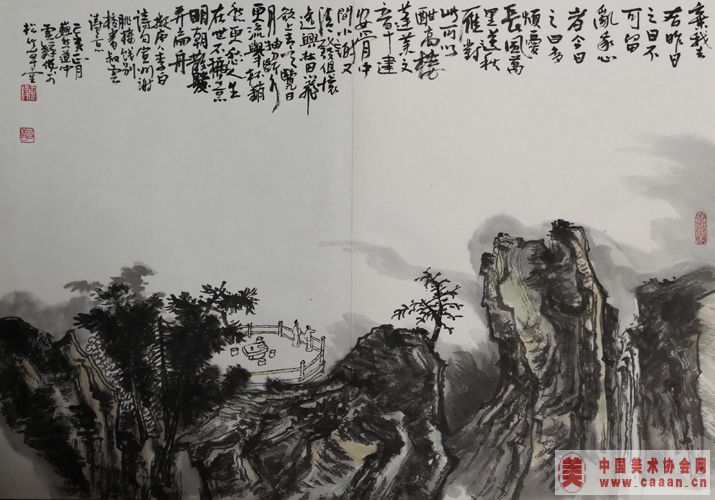 棄我去
者昨日
之日不
可留
亂我心
者今日
之日多
煩憂
長風萬
里送秋
雁對
此可以
酣高樓
蓬萊文
章建
安骨中
間小謝又
清發俱懷
逸興壯思飛
欲上青天覽日
月抽刀斷水
更流舉杯銷
愁更愁人生
在世不稱意
明朝散髮
弄扁舟
唐人李白
詩句宣州謝
朓樓餞別
校書叔雲
詩意
己亥正月
道中
松竹草堂
美 中国美术协会网
www.caaan.cn